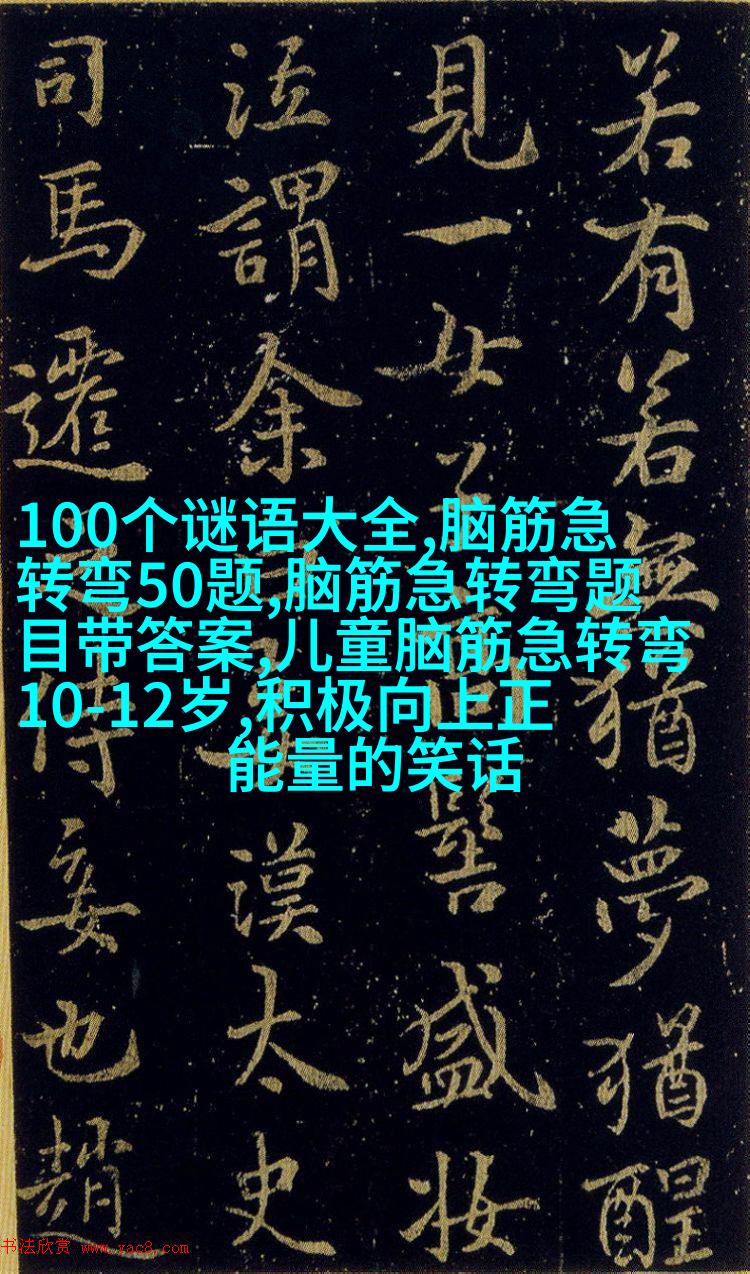 若有若無猶夢猶醒
見一女子髻盛妝
泣謂余漢太史
司馬遷之侍妾也趙
100个谜语大全,脑筋急
转弯50题,脑筋急转弯题
目带答案,儿童脑筋急转弯
10-12岁,积极向上正
能量的笑话
书法欣赏 www.yac8.com